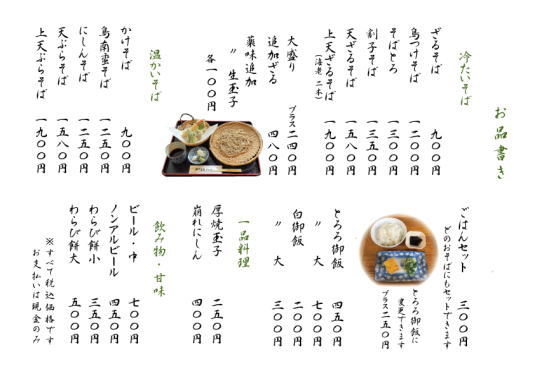 お品書き
冷たいそば
ざるそば 九〇〇円
鳥つけそば 一二〇〇円
そばとろ 一三〇〇円
割子そば 一三五〇円
天ざるそば 一五八〇円
上天ざるそば 一九〇〇円
(海老 二本)
大盛り プラス二四〇円
追加ざる 四八〇円
薬味追加
〃 生玉子
各一〇〇円
温かいそば
かけそば 九〇〇円
鳥南蛮そば 一二五〇円
にしんそば 一二五〇円
天ぷらそば 一五八〇円
上天ぷらそば 一九〇〇円
ごはんセット 三〇〇円
どのおそばにもセットできます
とろろ御飯に
変更できます
プラス二五〇円
とろろ御飯 四五〇円
〃 大 七〇〇円
白御飯 二〇〇円
〃 大 三〇〇円
一品料理
厚焼玉子 二五〇円
崩れにしん 四〇〇円
飲み物・甘味
ビール・中 七〇〇円
ノンアルビール 四五〇円
わらび餅小 三五〇円
わらび餅大 五〇〇円
※すべて税込価格です
お支払いは現金のみ